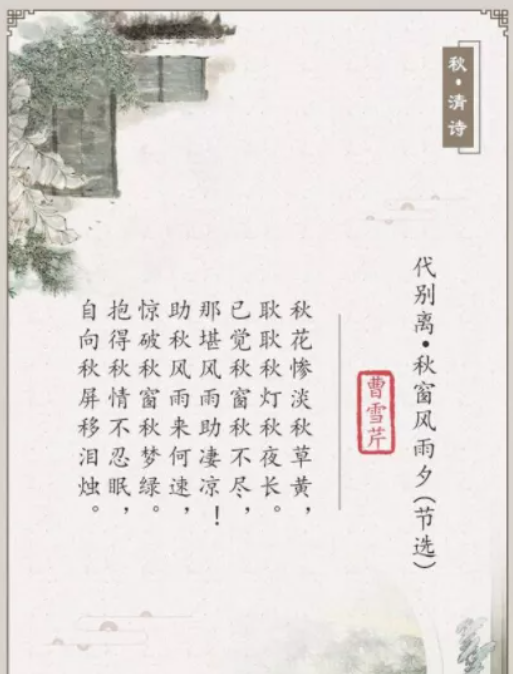 秋·清诗
代别离·秋窗风雨夕(节选)
曹雪芹
秋花惨淡秋草黄，
耿耿秋灯秋夜长。
已觉秋窗秋不尽，
那堪风雨助凄凉！
助秋风雨来何速，
惊破秋窗秋梦绿。
抱得秋情不忍眠，
自向秋屏移泪烛。